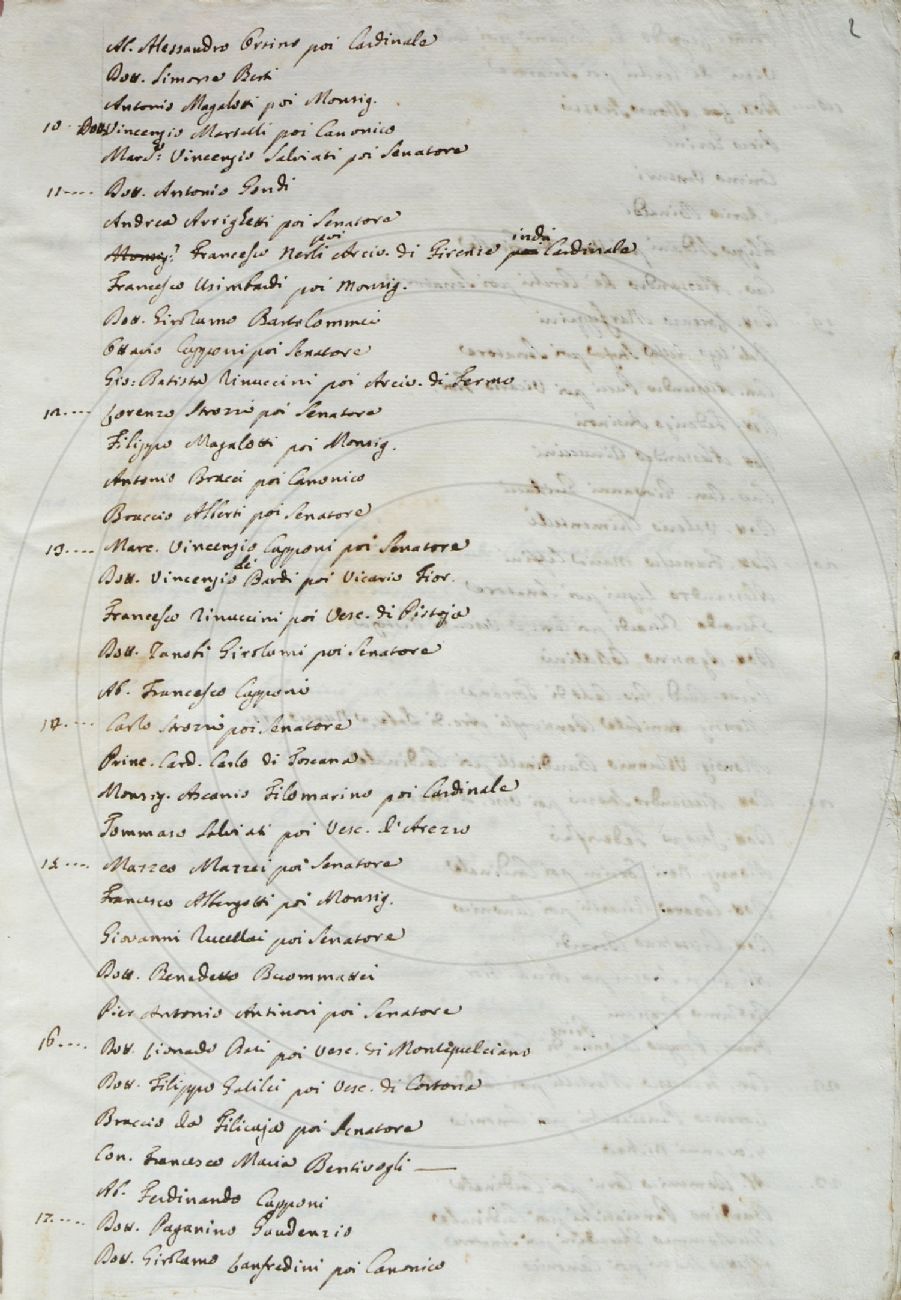 2
Ab. Alessandro Orsino poi Cardinale
Dott. Simone Berti
Antonio Magalotti poi Monsig.
10 Dott. Vincenzio Martelli poi Canonico
March: Vincenzio Salviati poi Senatore
11.... Dott. Antonio Gondi
Andrea Arrighetti poi Senatore
Monsig: Francesco Nerli poi Arciv. di Firenze poi indi Cardinale
Francesco Usimbardi poi Monsig.
Dott. Girolamo Bartolommei
Ottavio Capponi poi Senatore
Gio: Batista Rinuccini poi Arciv. di Fermo
12.... Lorenzo Strozzi poi Senatore
Filippo Magalotti poi Monsig.
Antonio Bracci poi Canonico
Braccio Alberti poi Senatore
13.... Marc. Vincenzio Capponi poi Senatore
Dott. Vincenzio de' Bardi poi Vicario Fior.
Francesco Rinuccini poi Vesc. di Pistoja
Dott. Zanobi Girolami poi Senatore
Ab. Francesco Capponi
14.... Carlo Strozzi poi Senatore
Princ. Card. Carlo di Toscana
Monsig. Ascanio Filomarino poi Cardinale
Tommaso Salviati poi Vesc. d'Arezzo
15.... Mazzeo Mazzei poi Senatore
Francesco Albergotti poi Monsig.
Giovanni Rucellai poi Senatore
Dott. Benedetto Buommattei
Pier Antonio Antinori poi Senatore
16.... Dott. Lionardo Dati poi Vesc. di Montepulciano
Dott. Filippo Galilei poi Vesc. di Cortona
Braccio da Filicaja poi Senatore
Con. Francesco Maria Bentivogli —
Ab. Ferdinando Capponi
17..... Dott. Paganino Gaudenzio
Dott. Girolamo Lanfredini poi Canonico